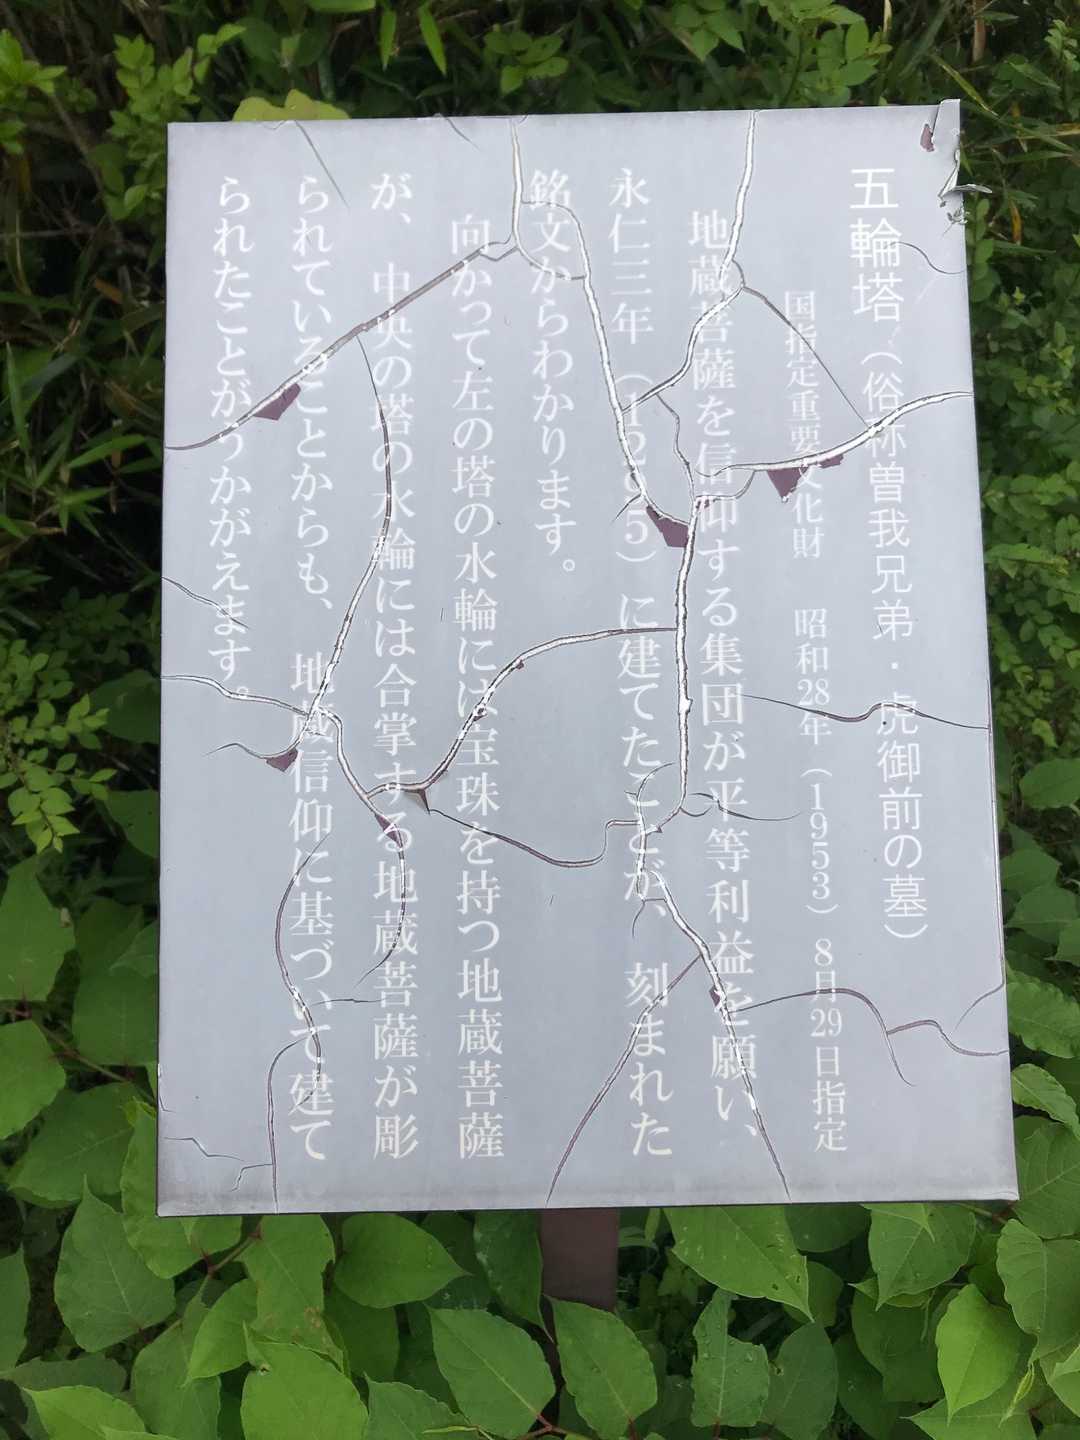 五輪塔（俗称曽我兄弟・虎御前の墓）
国指定重要文化財　昭和28年（1953）8月29日指定
地蔵菩薩を信仰する集団が平等利益を願い、
永仁三年（1295）に建てたことが、刻まれた
銘文からわかります。
向かって左の塔の水輪には宝珠を持つ地蔵菩薩
が、中央の塔の水輪には合掌する地蔵菩薩が彫
られていることからも、地蔵信仰に基づいて建て
られたことがうかがえます。